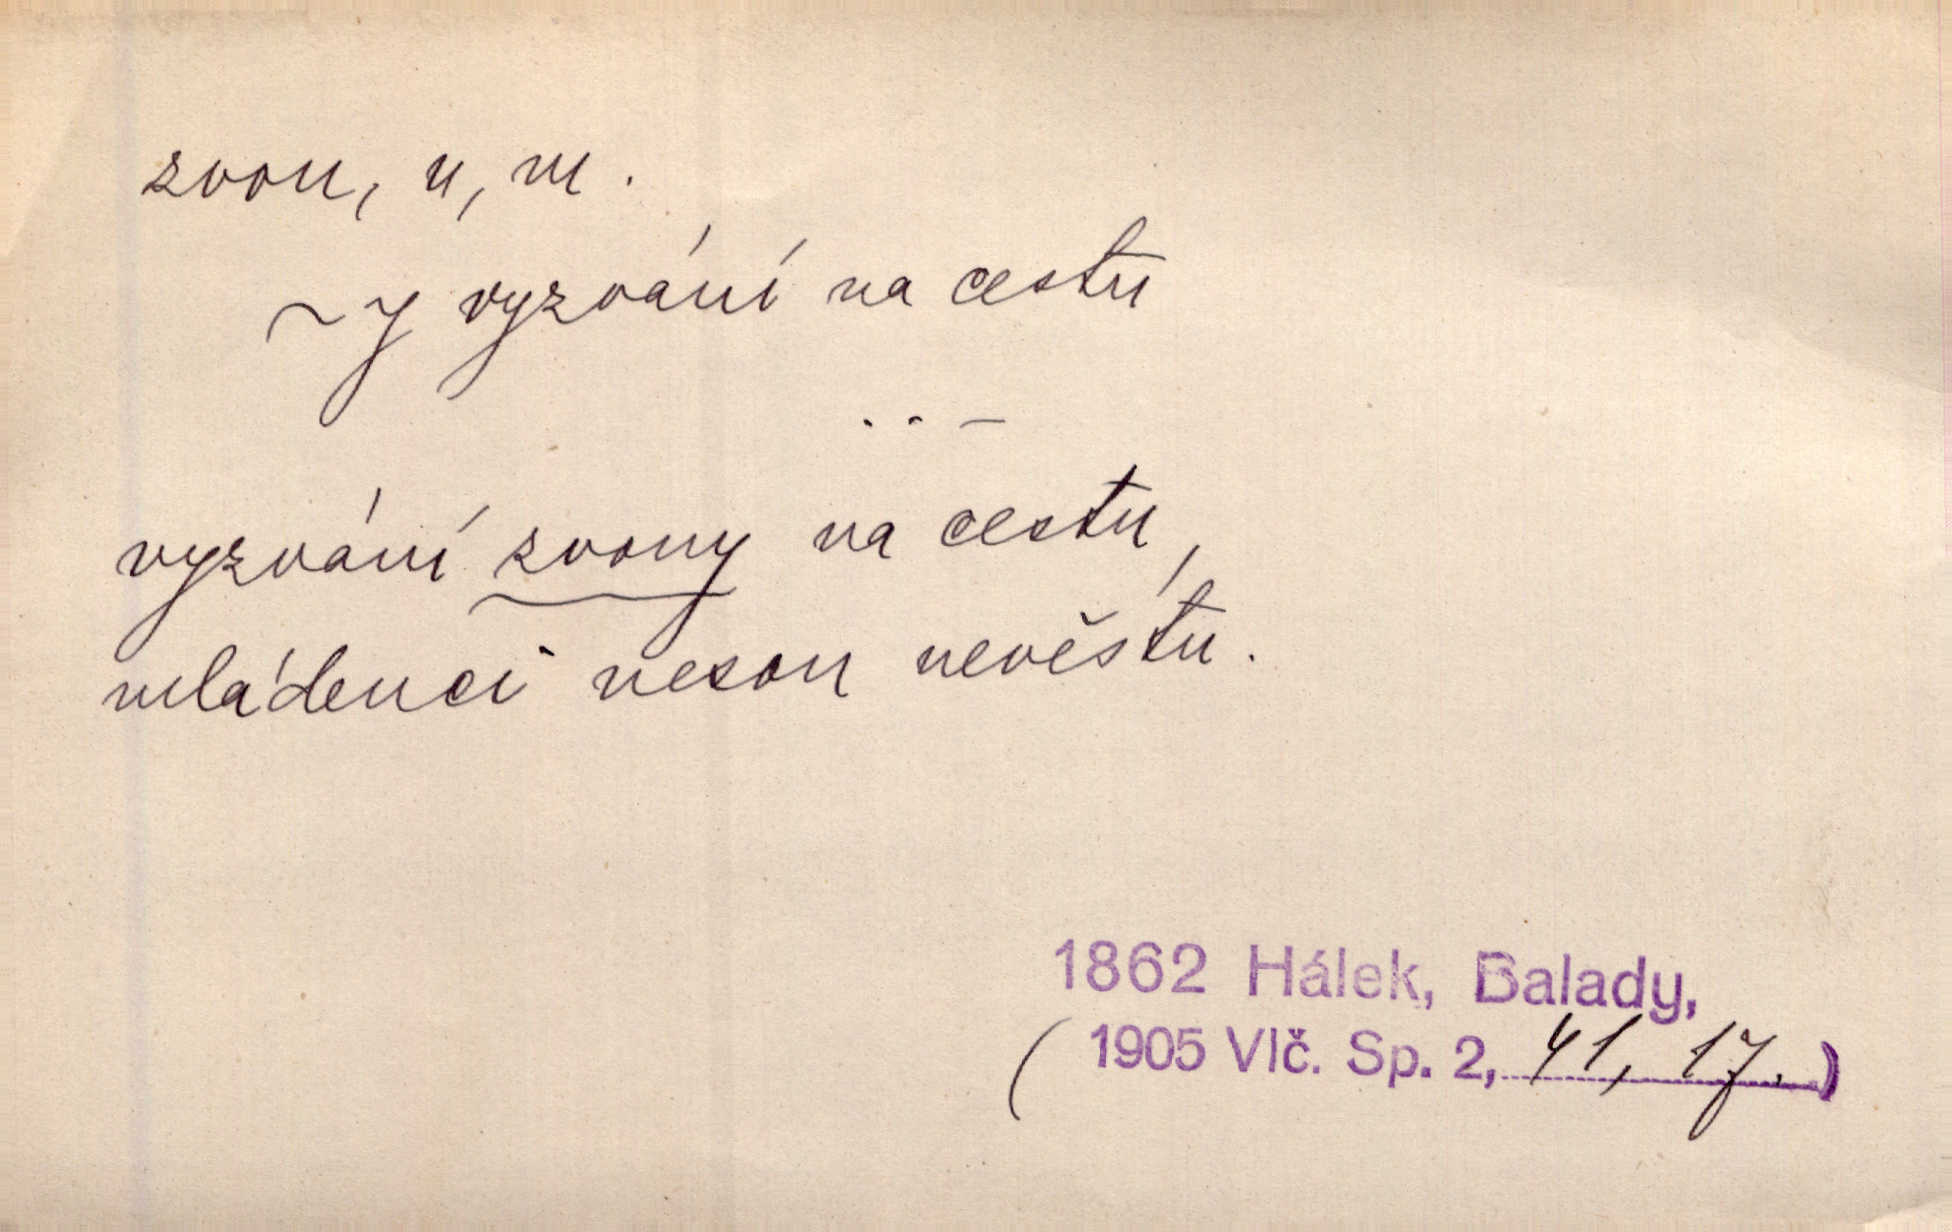 zvon, u, m.
~y vyzvání na cestu
. . –
vyzvání zvony na cestu,
mládenci nesou nevěstu.
1862 Hálek, Balady,
(1905 Vlč. Sp. 2, 41, 17.)